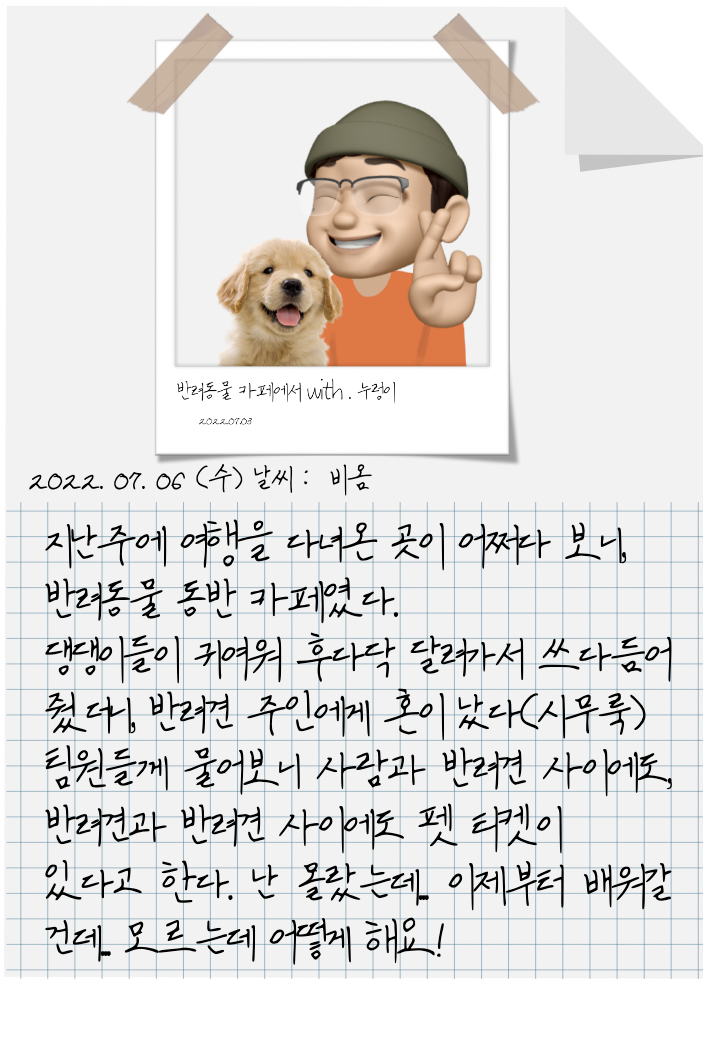 반려동물 카페에서 with. 누렁이
2022.07.03
2022. 07. 06 (수) 날씨 : 비옴
지난주에 여행을 다녀온 곳이 어쩌다 보니,
반려동물 동반 카페였다.
댕댕이들이 귀여워 후다닥 달려가서 쓰다듬어
줬더니, 반려견 주인에게 혼이 났다(시무룩)
팀원들게 물어보니 사람과 반려견 사이에도,
반려견과 반려견 사이에도 펫 티켓이
있다고 한다. 난 몰랐는데... 이제부터 배워갈
건데... 모르는데 어떻게 해요!